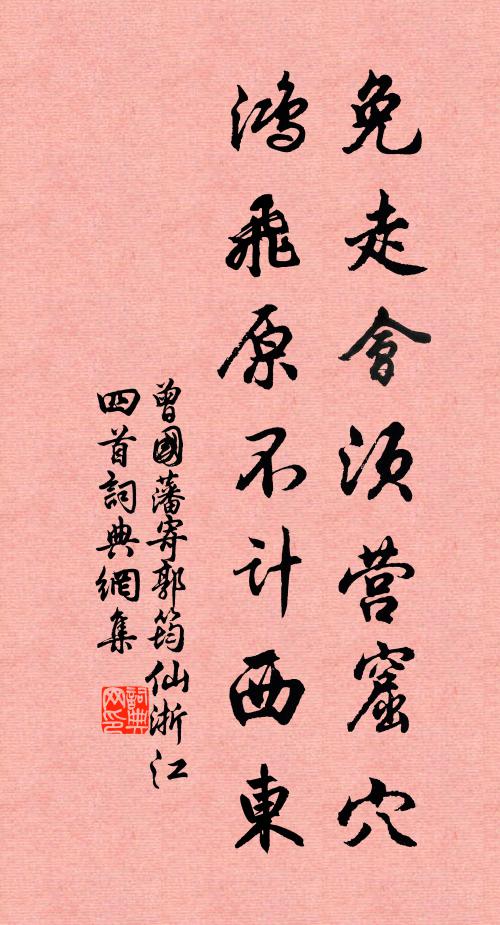 免走會須营窟穴
鴻飛原不計西東
曾國藩寄郭筠仙浙江
四首詞典網集
詞典
网印